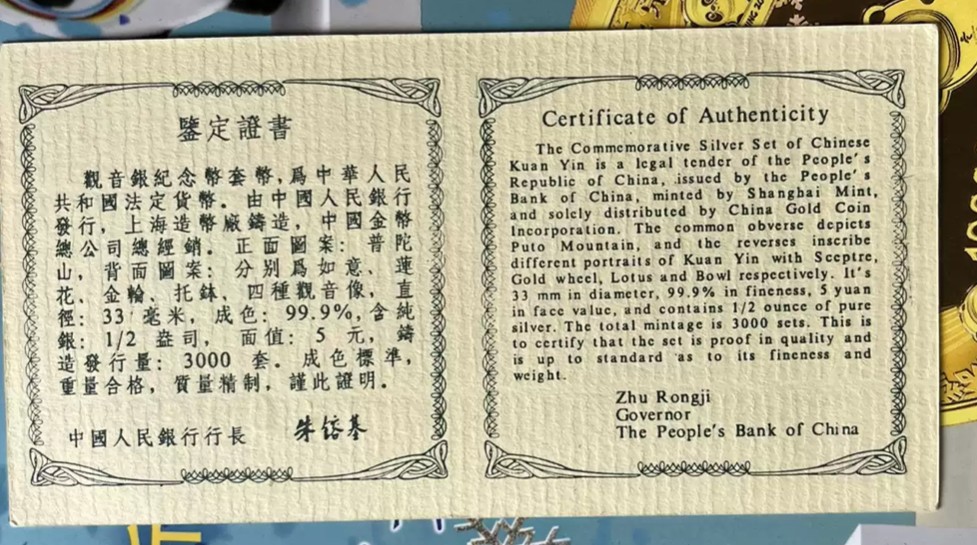 鑒定證書
觀音銀紀念幣套幣，爲中華人民
共和國法定貨幣。由中國人民銀行
發行，上海造幣廠鑄造，中國金幣
總公司總經銷。正面圖案：普陀
山，背面圖案：分别爲如意、蓮
花、金輪、托鉢，四種觀音像，直
徑：33 毫米，成色：99.9%，含純
銀：1/2 盎司，面值：5 元，鑄
造發行量：3000 套。成色標準，
重量合格，質量精制，謹此證明。
中國人民銀行行長 朱镕基
Certificate of Authenticity
The Commemorative Silver Set of Chinese
Kuan Yin is a legal tender of the People's
Republic of China, issued by the People's
Bank of China, minted by Shanghai Mint,
and solely distributed by China Gold Coin
Incorporation. The common obverse depicts
Puto Mountain, and the reverses inscribe
different portraits of Kuan Yin with Sceptre,
Gold wheel, Lotus and Bowl respectively. It's
33 mm in diameter, 99.9% in fineness, 5 yuan
in face value, and contains 1/2 ounce of pure
silver. The total mintage is 3000 sets. This is
to certify that the set is proof in quality and
is up to standard as to its fineness and
weight.
Zhu Rongji
Governor
The People's Bank of China